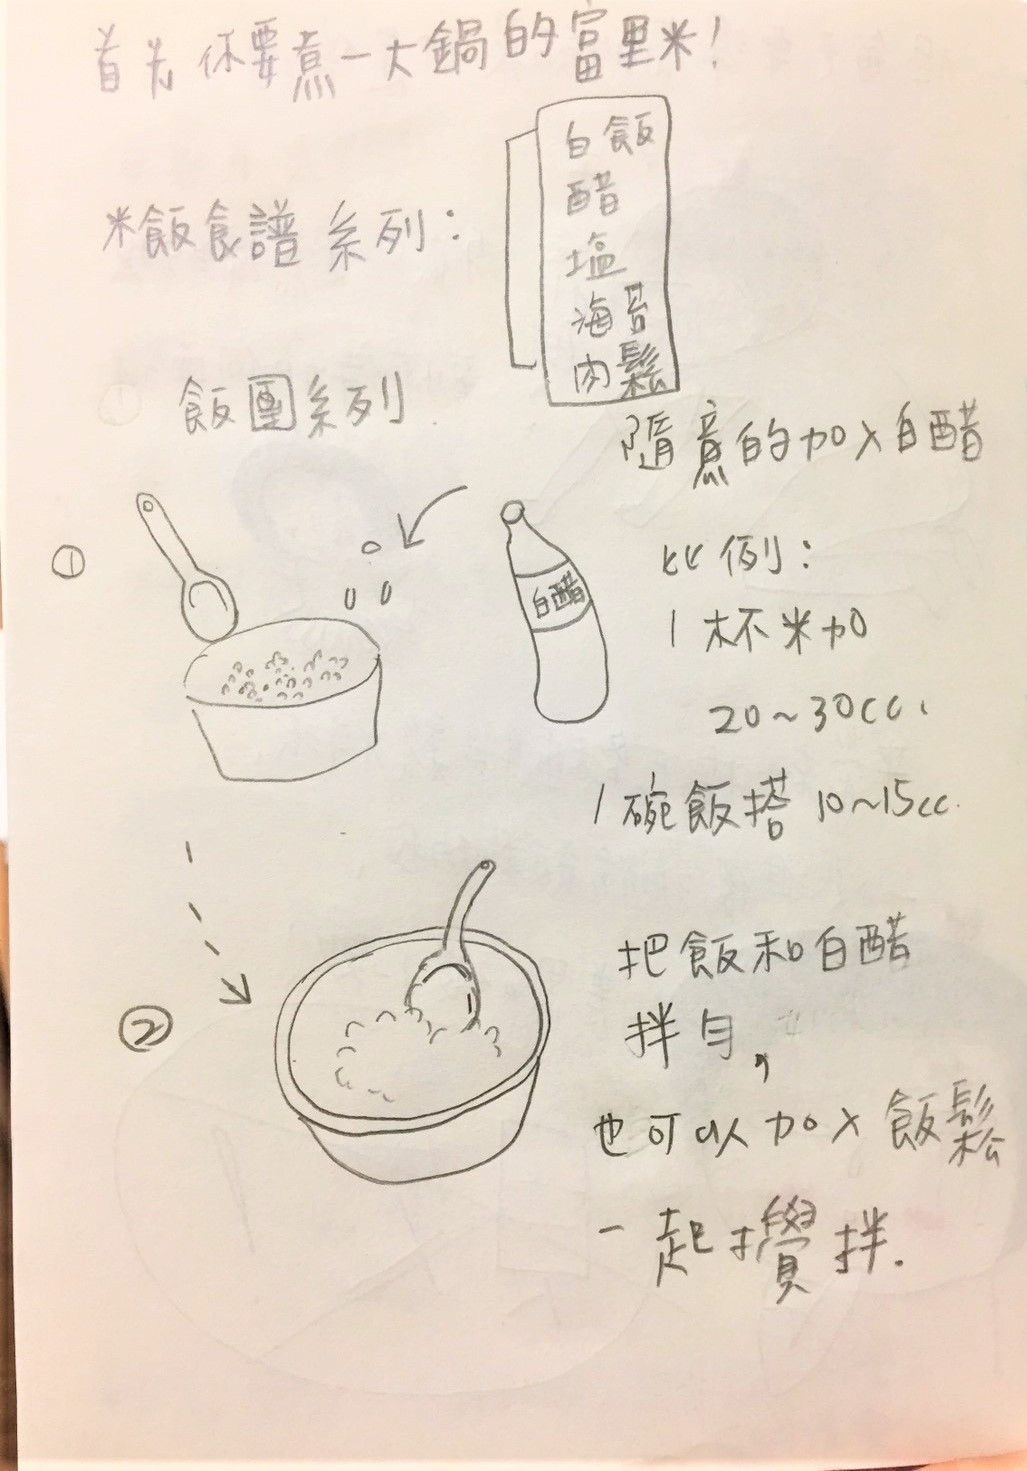 首先你要煮一大鍋的富里米!
米飯食譜系列:
白飯
醋
塩
海苔
肉鬆
飯團系列
隨意的加入白醋
①
白醋
比例:
1杯米加
20~30cc、
1碗飯搭10~15cc.
②
把飯和白醋
拌勻,
也可以加入飯鬆
一起攪拌.